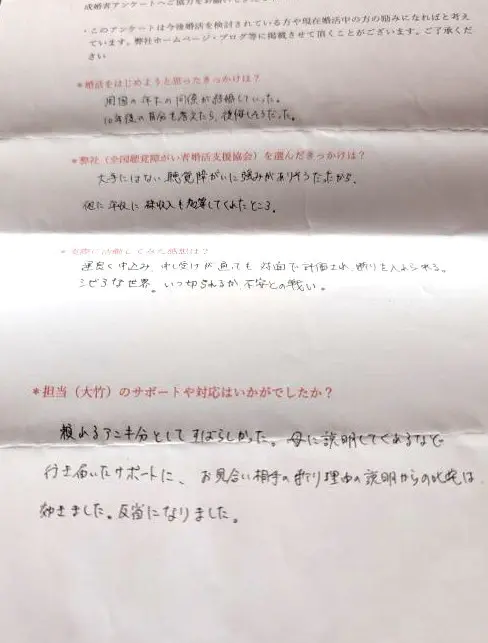 成婚者アンケートへご協力をお願いいたします。
・このアンケートは今後婚活を検討されている方や現在婚活中の方の励みになればと考え
ています。弊社ホームページ・ブログ等に掲載させて頂くことがございます。ご了承くださ
い
*婚活をはじめようと思ったきっかけは?
周囲の年下の同僚が結婚していった。
10年後の自分を考えたら、後悔しそうだった。
*弊社(全国聴覚障がい者婚活支援協会)を選んだきっかけは?
大手にはない聴覚障がいに強みがありそうだったから。
他に年収に 株収入も加算してくれたところ。
*実際に活動してみた感想は?
運良く申込み、申し受けが通っても 対面で評価され、断りを入れられる。
シビアな世界。いつ切られるか不安との戦い。
*担当(大竹)のサポートや対応はいかがでしたか?
頼れるアニキ分としてすばらしかった。母に説明してくれるなど
行き届いたサポートに、お見合い相手の断り理由の説明からの叱咤は
効きました。反省になりました。